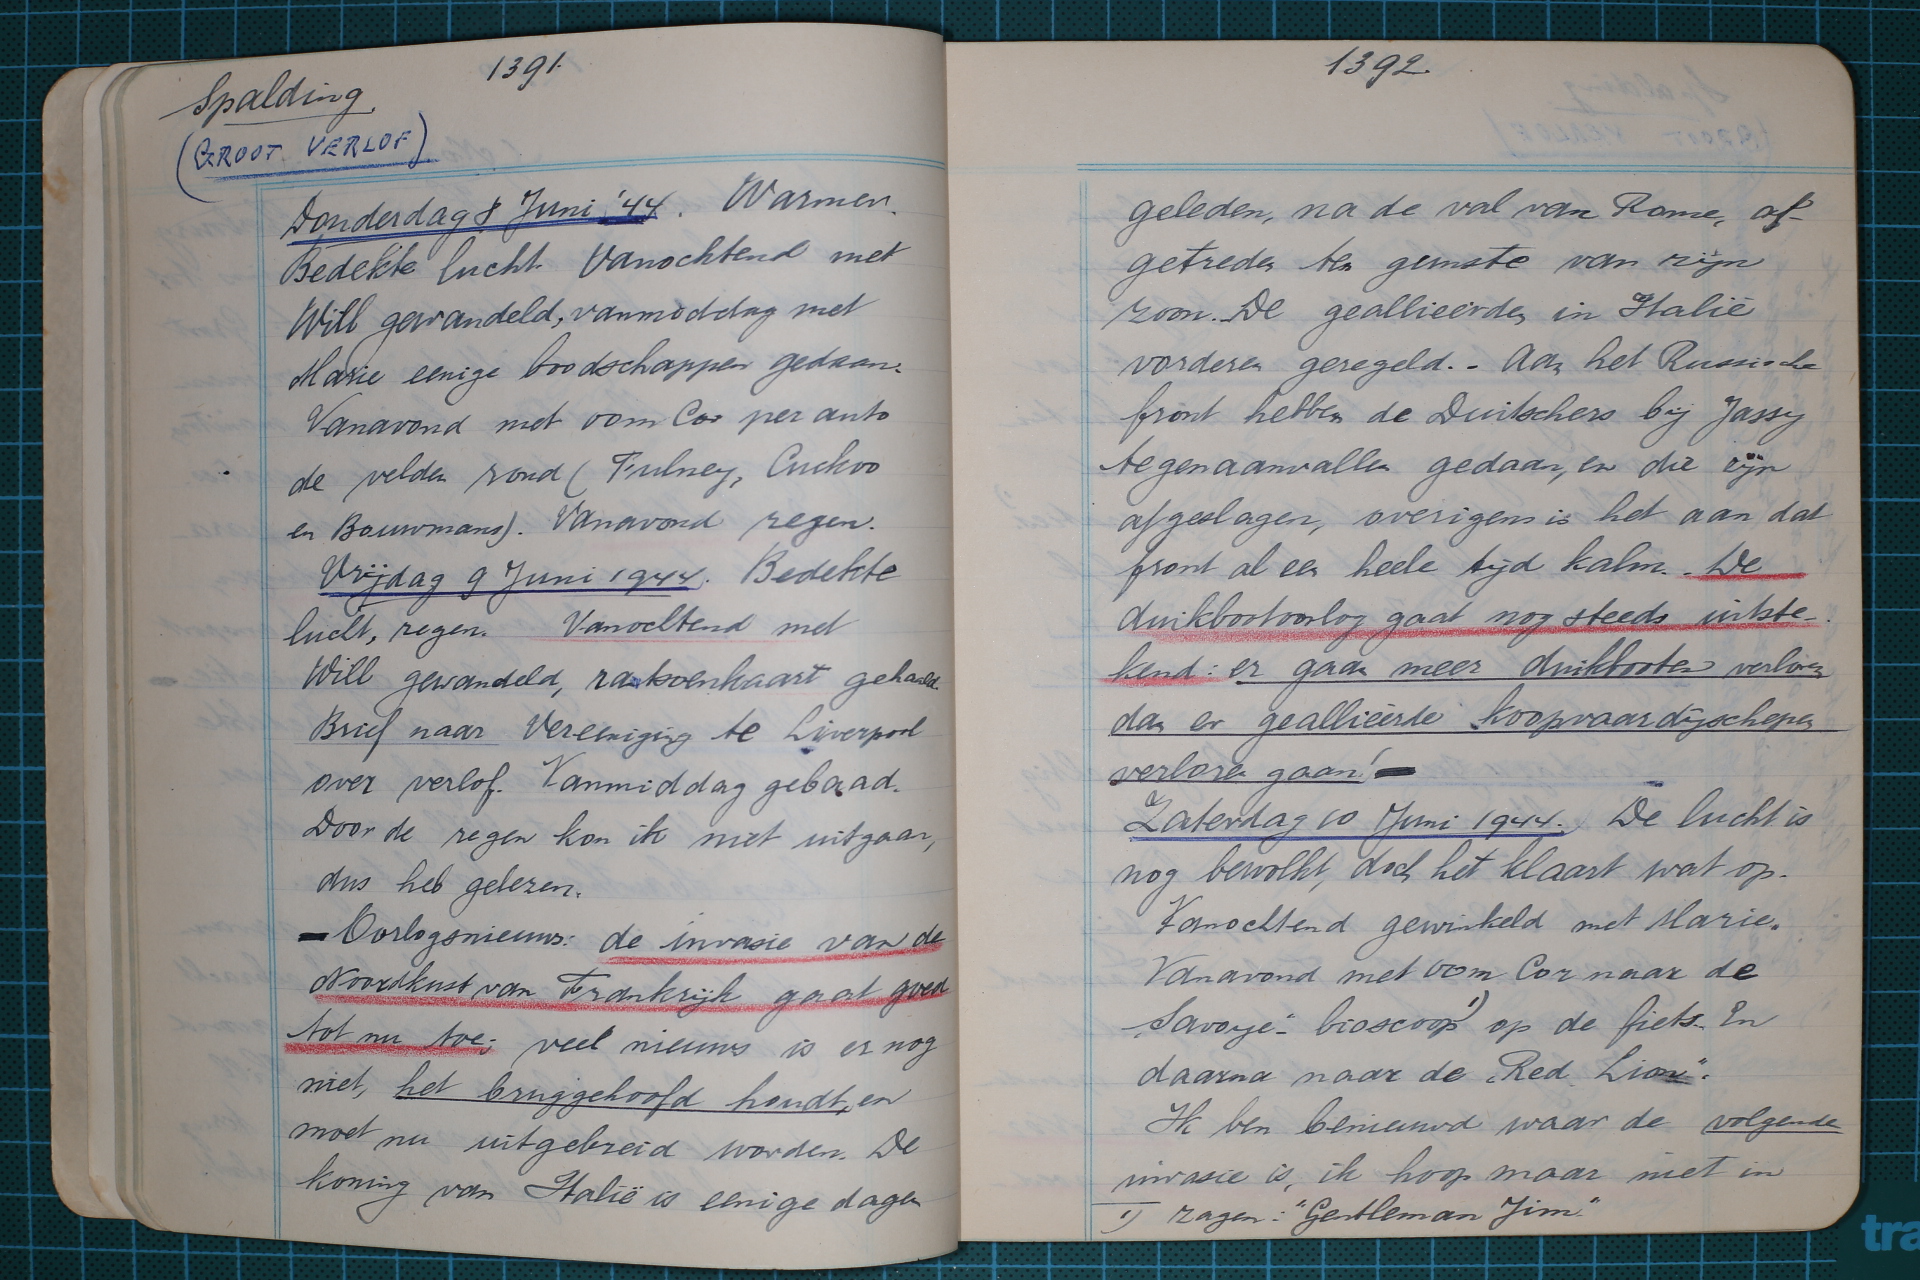 1391.
Spalding.
(GROOT VERLOF)
Donderdag 8 Juni '44. Warmer.
Bedekte lucht. Vanochtend met
Will gewandeld, vanmiddag met
Marie eenige boodschappen gedaan.
Vanavond met oom Cor per auto
de velden rond (Fulney, Cuckoo
en Bouwmans). Vanavond regen.
Vrijdag 9 Juni 1944. Bedekte
lucht, regen. Vanochtend met
Will gewandeld, rantsoenkaart gehaald.
Brief naar Vereeniging te Liverpool
over verlof. Vanmiddag gebaad.
Door de regen kon ik niet uitgaan,
dus heb gelezen.
— Oorlogsnieuws: de invasie van de
Noordkust van Frankrijk gaat goed
tot nu toe; veel nieuws is er nog
niet, het bruggehoofd houdt, en
moet nu uitgebreid worden. De
koning van Italië is eenige dagen
1392.
geleden, na de val van Rome, af-
getreden ten gunste van zijn
zoon. De geallieerden in Italië
vorderen geregeld. - Aan het Russische
front hebben de Duitschers bij Jassy
tegenaanvallen gedaan, en die zijn
afgeslagen, overigens is het aan dat
front al een heele tijd kalm. De
duikbootoorlog gaat nog steeds uitste-
kend: er gaan meer duikbooten verloren
dan er geallieerde koopvaardijschepen
verloren gaan! —
Zaterdag 10 Juni 1944. De lucht is
nog bewolkt, doch het klaart wat op.
Vanochtend gewinkeld met Marie.
Vanavond met oom Cor naar de
"Savoye"- bioscoop 1) op de fiets. En
daarna naar de "Red Lion".
Ik ben benieuwd waar de volgende
invasie is, ik hoop maar niet in
1) zagen: "Gentleman Jim"
tra